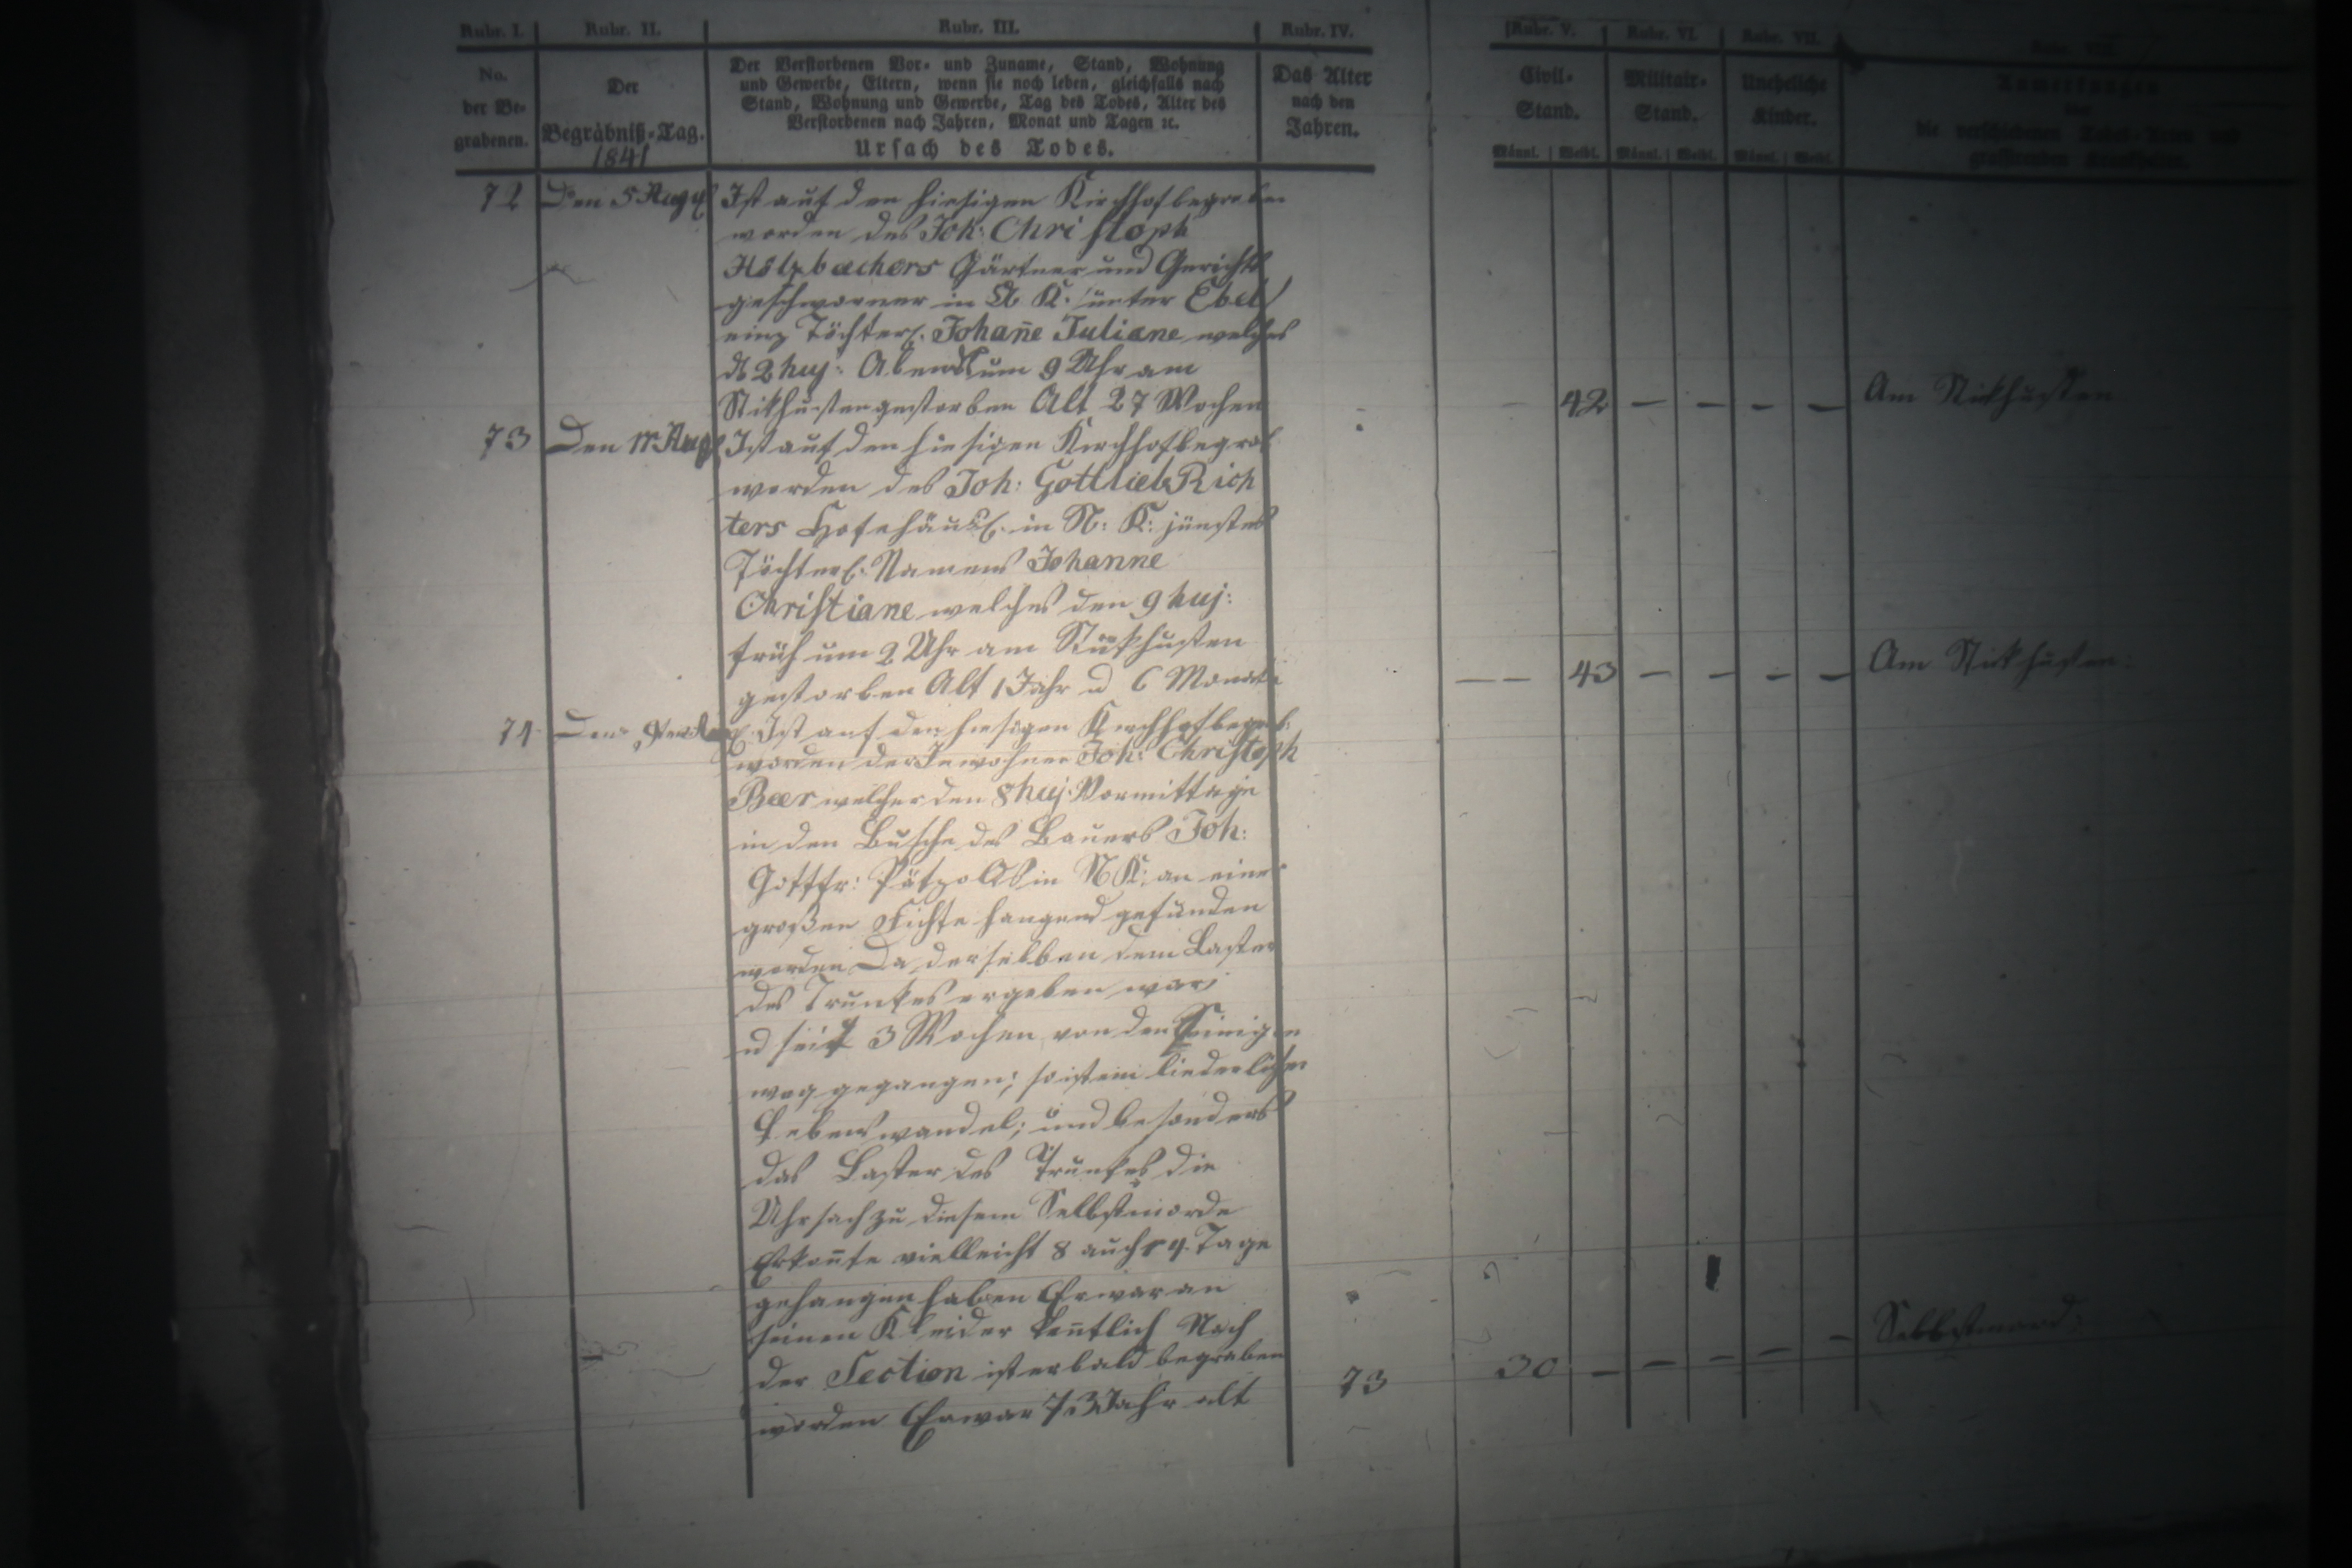 Rubr. I. Rubr. II. Rubr. III. Rubr. IV. Rubr. V. Rubr. VI. Rubr. VII.
No. der Begrabenen.
Der Begräbniß-Tag.
1841
Der Verstorbenen Vor- und Zuname, Stand, Wohnung
und Gewerbe, Eltern, wenn sie noch leben, gleichfalls nach
Stand, Wohnung und Gewerbe, Tag des Todes, Alter des
Verstorbenen nach Jahren, Monat und Tagen ꝛc.
Ursach des Todes.
Das Alter
nach den
Jahren.
Civil-
Stand.
Männl. Weibl.
Militair-
Stand.
Männl. Weibl.
Uneheliche
Kinder.
Männl. Weibl.
Anmerkungen
über
die verschiedenen Todes-Arten und
grassirenden Krankheiten.
72 Den 5 Aug Ist auf den hiesigen Kirchhof begraben
worden des Joh: Christoph
Holzbechers Gärtner und Gerichts
geschworner in K: unter Ebel
Töchterl. Johan̄e Juliane welches
d 2 huj: Abends um 9 Uhr am
Stikhusten gestorben Alt 27 Wochen
42 — — — — Am Stikhusten
73 Den Aug Ist auf den hiesigen Kirchhof begrab
worden des Joh: Gottlieb Rich
ters Hofehäusl. in N: K: jünstes
Töchterl. Namens Johanne
Christiane welches den 9 huj:
früh um 2 Uhr am Stikhusten
gestorben Alt 1 Jahr u 6 Monat
— — 43 — — — — Am Stikhusten:
74 Den Ist auf den hiesigen Kirchhof begrab:
worden der Inwohner Joh: Christoph
Beer welcher den 8 huj: Vormittage
in den Busche des Bauers Joh:
Gottfr: Pätzolds in N K: an einer
großen Fichte hangend gefunden
worden Da derselben dem Laster
des Trunkes ergeben war;
u seit 3 Wochen von den Seinigen
weg gegangen; so ist ein liederlicher
Lebenswandel; und besonders
das Laster des Trunkes die
Uhrsach zu diesem Selbstmorde
Er kon̄te vielleicht 8 auch 14 Tage
gehangen haben Er war an
seinen Kleider ken̄tlich Nach
der Section ist er bald begraben
worden Er war 73 Jahr alt
73 30 — — — — — Selbstmord